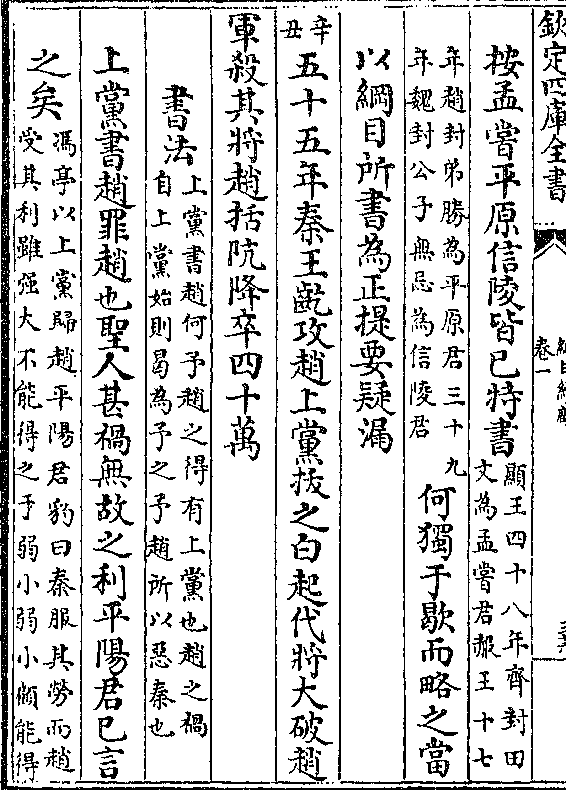 欽定四庫全書
卷一
按孟嘗平原信陵皆已特書
顯王四十八年齊封田
文為孟嘗君赧王十七
年趙封弟勝為平原君三十九
年魏封公子無忌為信陵君
何獨于歇而略之當
以綱目所書為正提要疑漏
辛丑
五十五年秦王齕攻趙上黨拔之白起代將大破趙
軍殺其將趙括阬降卒四十萬
書法
上黨書趙何予趙之得有上黨也趙之禍
自上黨始則曷為予之予趙所以惡秦也
上黨書趙罪趙也聖人甚禍無故之利平陽君已言
之矣
馮亭以上黨歸趙平陽君豹曰秦服其勞而趙
受其利雖强大不能得之于弱小弱小顧能得